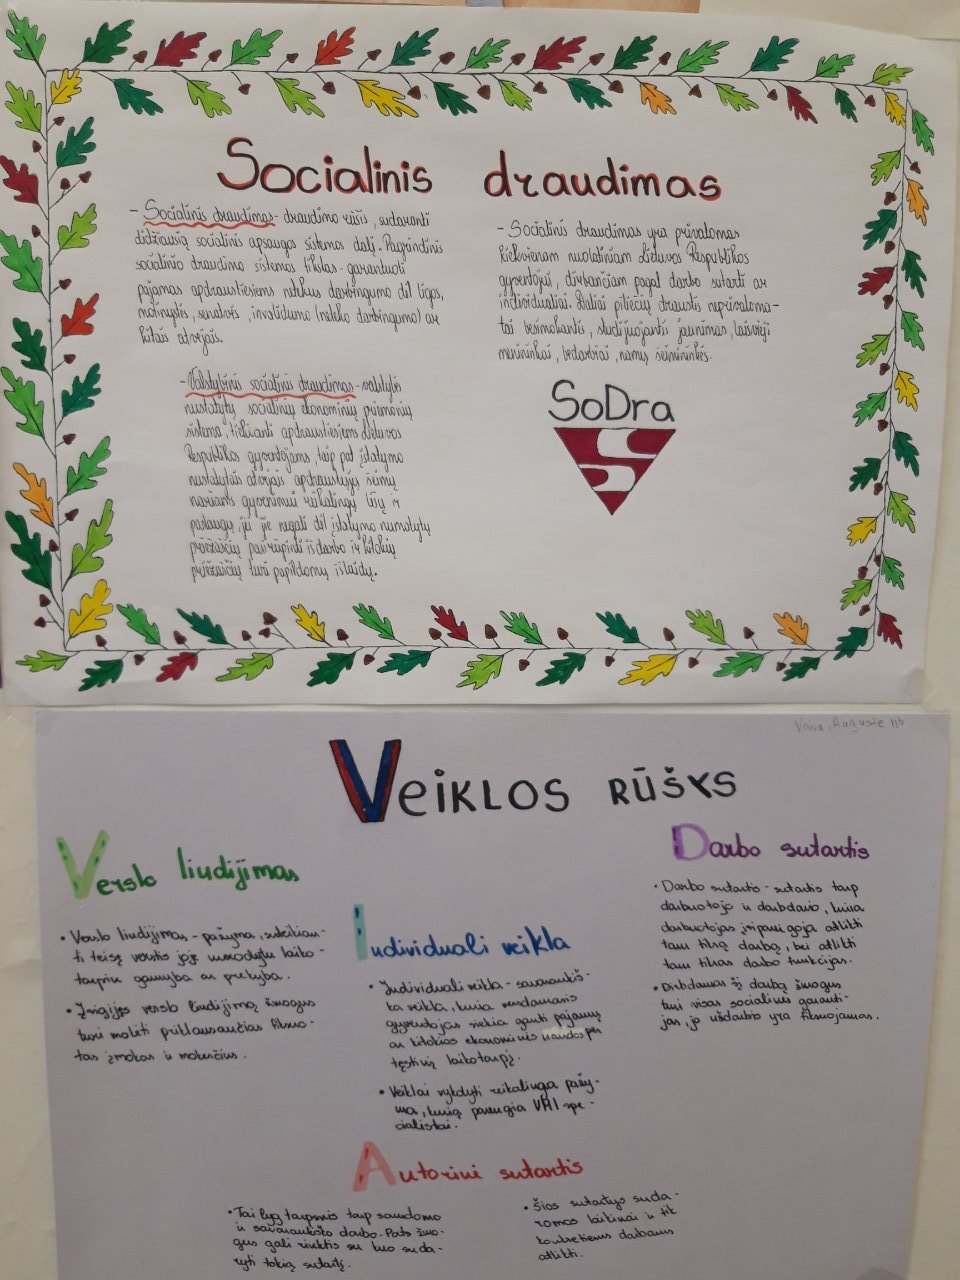 Socialinis draudimas
- Socialinis draudimas - draudimo rūšis, sudaranti
didžiausią socialinės apsaugos sistemos dalį. Pagrindinis
socialinio draudimo sistemos tikslas - garantuoti
pajamas apdraustiesiems netekus darbingumo dėl ligos,
motinystės, senatvės, invalidumo (netekto darbingumo) ar
kitais atvejais.
- Valstybinis socialinis draudimas - valstybės
nustatytų socialinių ekonominių priemonių
sistema, teikianti apdraustiesiems Lietuvos
Respublikos gyventojams, taip pat įstatymo
nustatytais atvejais apdraustųjų šeimų
nariams gyvenimui reikalingų lėšų ir
paslaugų, jei jie negali dėl įstatymo numatytų
priežasčių apsirūpinti iš darbo ir kitokių
priežasčių turi papildomų išlaidų.
- Socialinis draudimas yra privalomas
kiekvienam nuolatiniam Lietuvos Respublikos
gyventojui, dirbančiam pagal darbo sutartį ar
individualiai. Daliai piliečių draustis neprivaloma -
tai besimokantis, studijuojantis jaunimas, laisvieji
menininkai, bedarbiai, namų šeimininkės.
SoDra
Augustė IIb
VEIKLOS RŪŠYS
Verslo liudijimas
• Verslo liudijimas - pažyma, suteikian-
ti teisę verstis joje nurodytu laiko-
tarpiu gamyba ar prekyba.
• Įsigijęs verslo liudijimą žmogus
turi mokėti priklausančias fiksuo-
tas įmokas ir mokesčius.
Individuali veikla
• Individuali veikla - savarankiš-
ka veikla, kuria versdamasis
gyventojas siekia gauti pajamų
ar kitokios ekonominės naudos per
tęstinį laikotarpį.
• Veiklai vykdyti reikalinga pažy-
ma, kurią parengia VMI spe-
cialistai.
Darbo sutartis
• Darbo sutartis - sutartis tarp
darbuotojo ir darbdavio, kuria
darbuotojas įsipareigoja atlikti
tam tikrą darbą, bei atlikti
tam tikras darbo funkcijas.
• Dirbdamas šį darbą žmogus
turi visas socialines garanti-
jas, jo uždarbis yra fiksuojamas.
Autorinė sutartis
• Tai lyg tarpinis tarp samdomo
ir savarankiško darbo. Pats žmo-
gus gali rinktis su kuo suda-
ryti tokią sutartį.
• Šios sutartys suda-
romos laikinai ir tik
konkretiems darbams
atlikti.